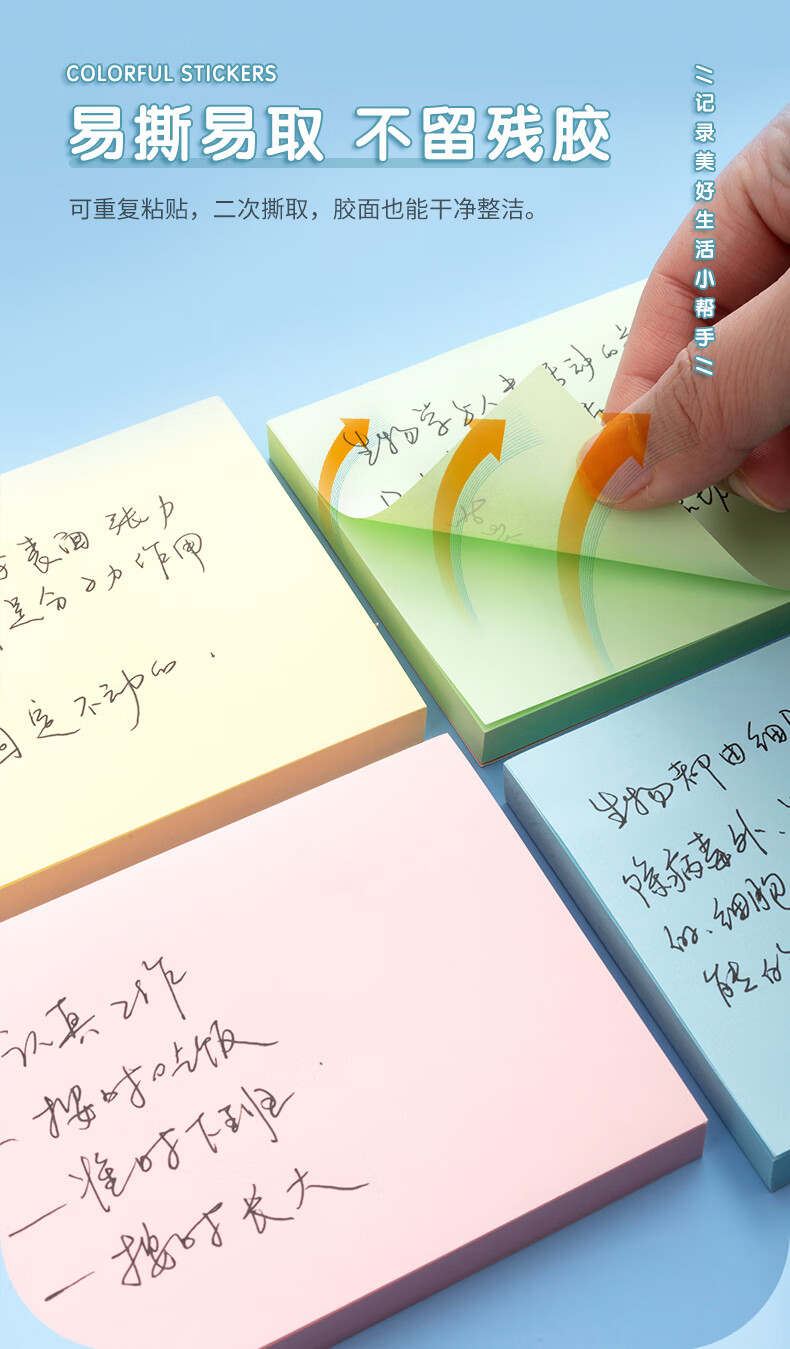 COLORFUL STICKERS
易撕易取 不留残胶
可重复粘贴，二次撕取，胶面也能干净整洁。
//记录美好生活小帮手//
生物学 活动的
表面张力
是分子力作用
固定不动的.
生物都由细胞
除病毒外、
的.细胞
能的
认真工作
按时吃饭
一准时下班
一按时长大